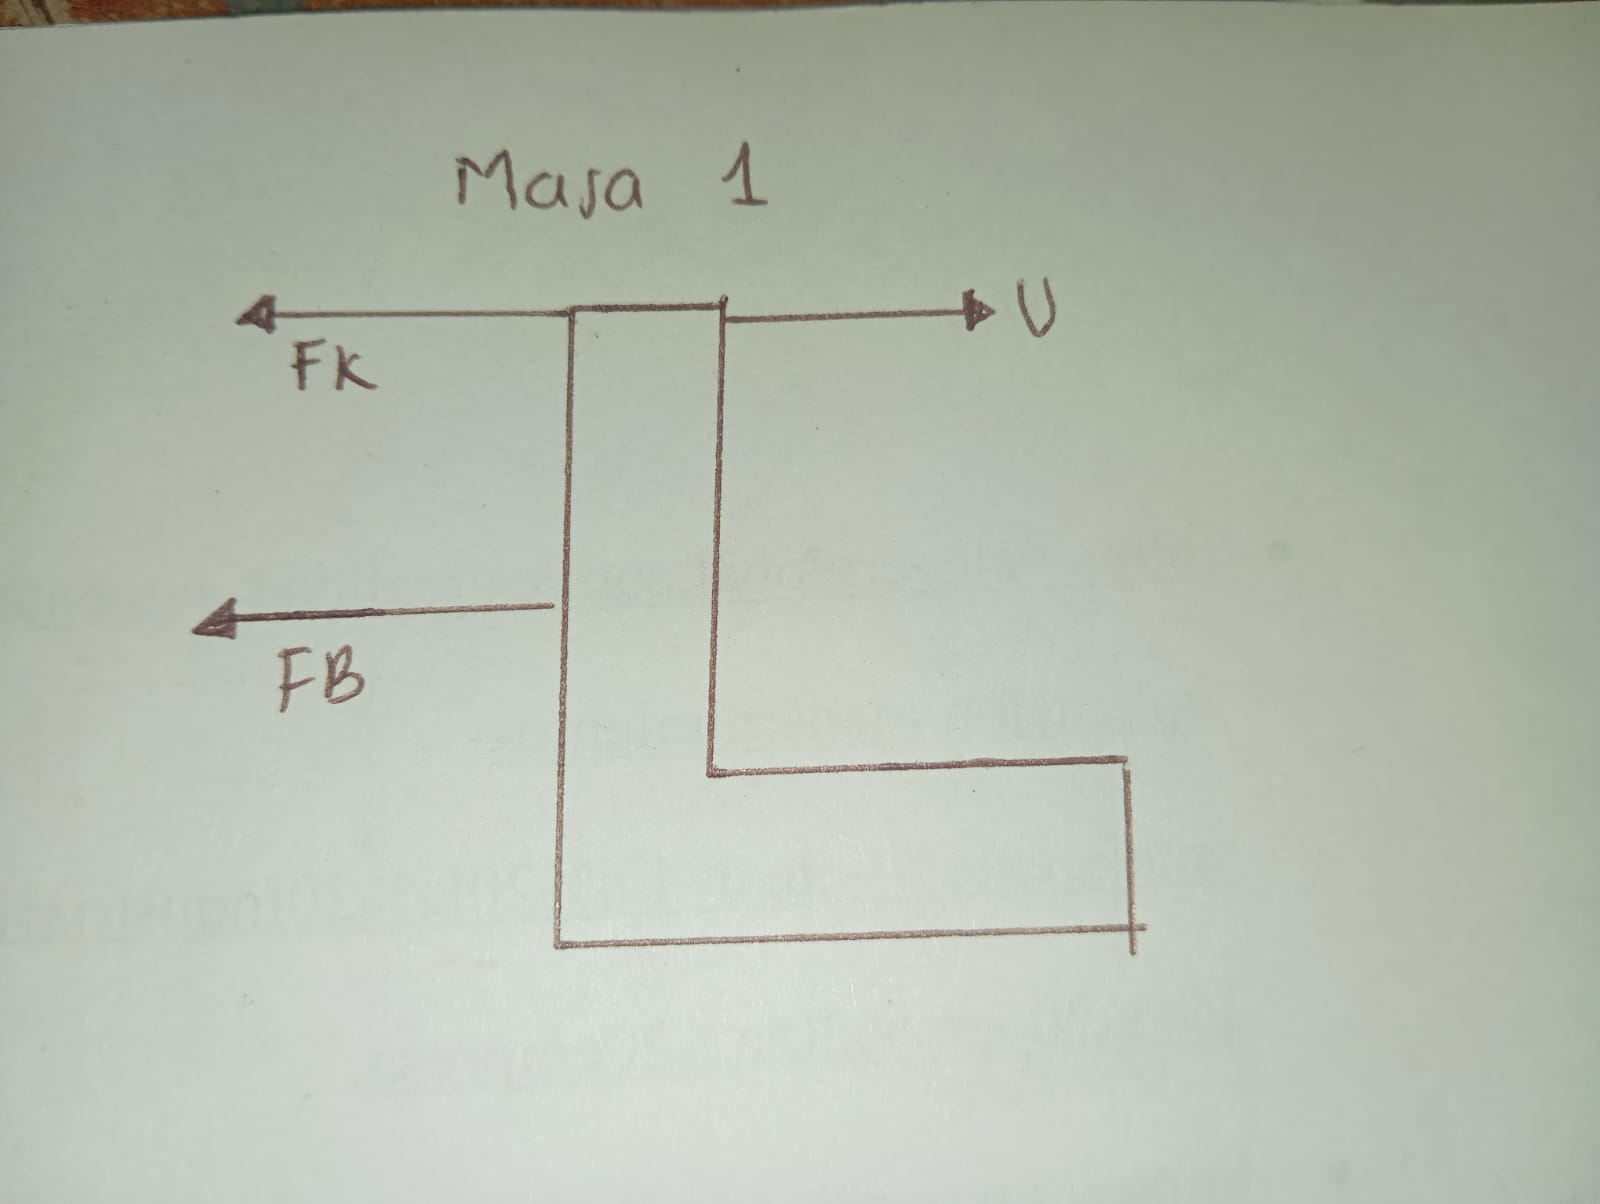 Masa 1
U
FK
FB